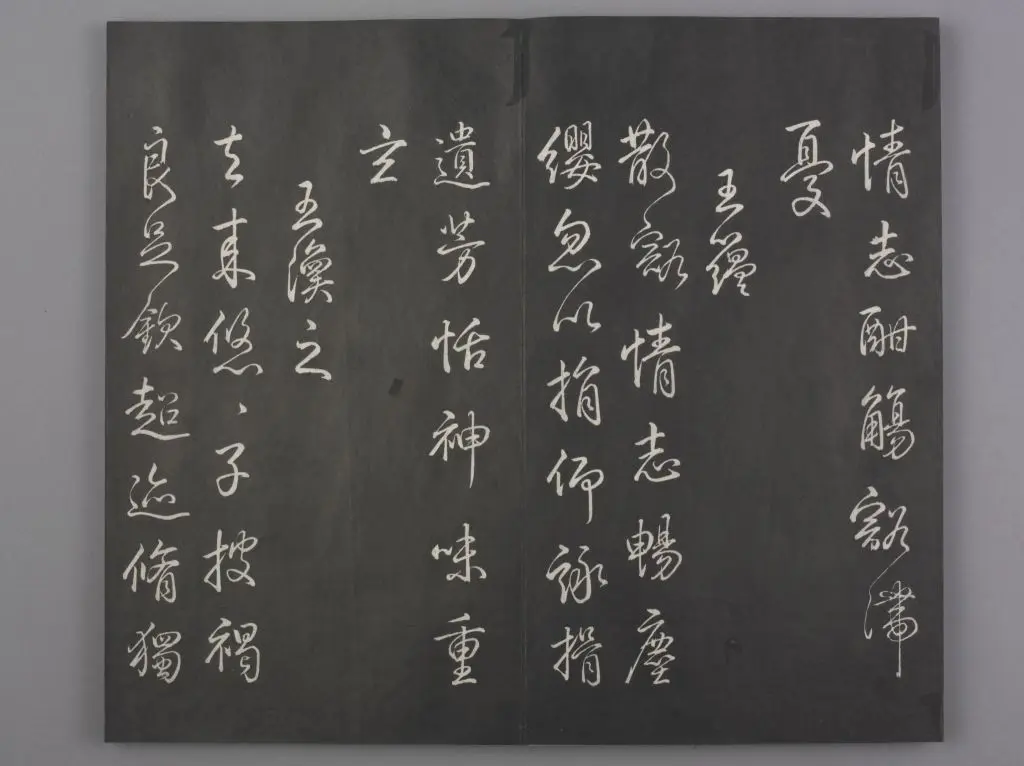 情志酣觴豁滯
憂
王蘊
散豁情志暢塵
纓忽以捐仰詠揖
遺芳恬神味重
玄
王渙之
去來悠〻子披褐
良足欽超迹脩獨